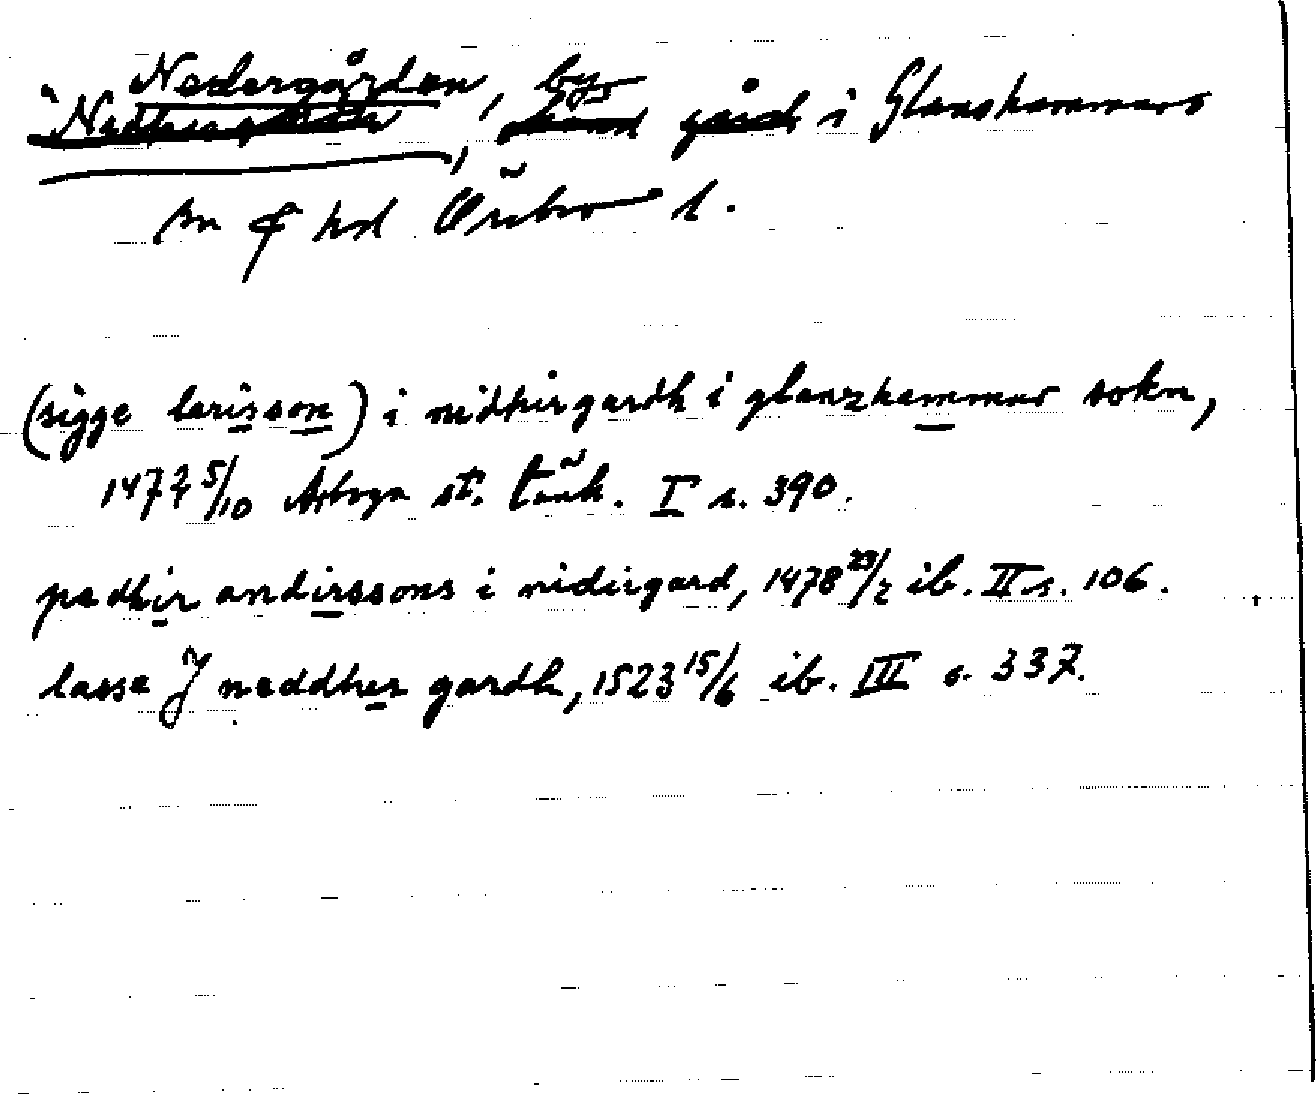 Nedergården, by
i Glanshammars
sn & hd Örebro l.
(sigge larisson) i nidhirgardh i glanzhammar sokn,
5/10 Arboga st. tänk. I s. 390.
pedhir andirssons i nidirgard, 1478 23/2 ib. II s. 106.
lasse J neddher gardh, 1523 15/6 ib. III s. 337.